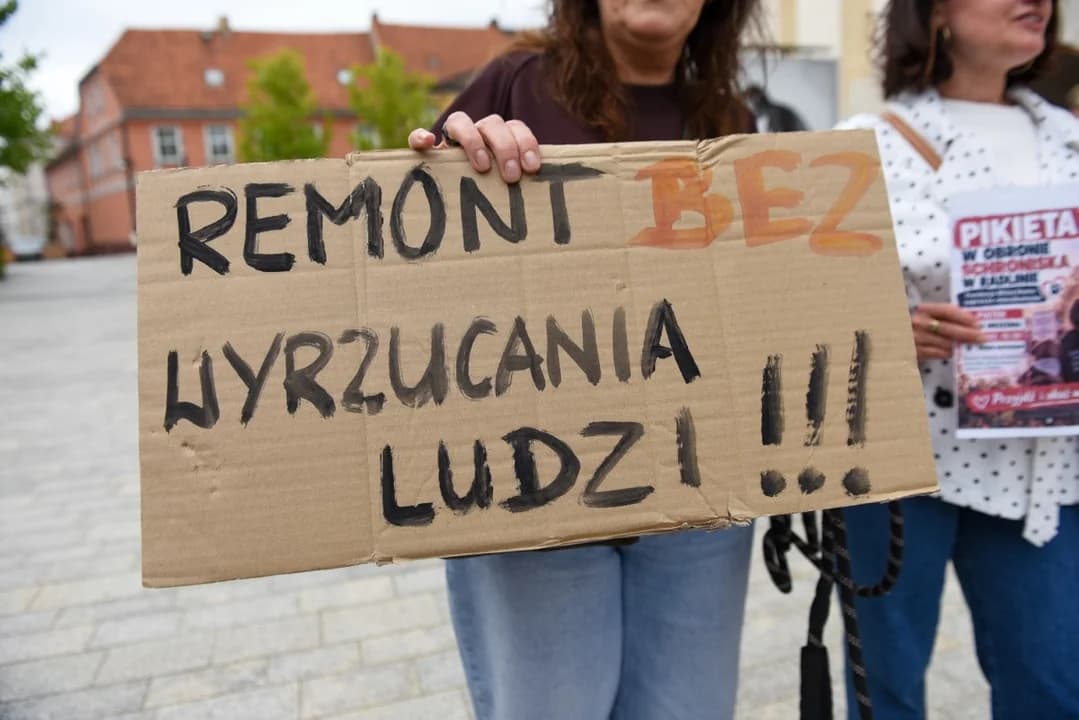 REMONT BEZ
WYRZUCANIA
LUDZI !!!
PIKIETA
W OBRONIE
SCHRONISKA
W RADLINIE
Przyjdź i